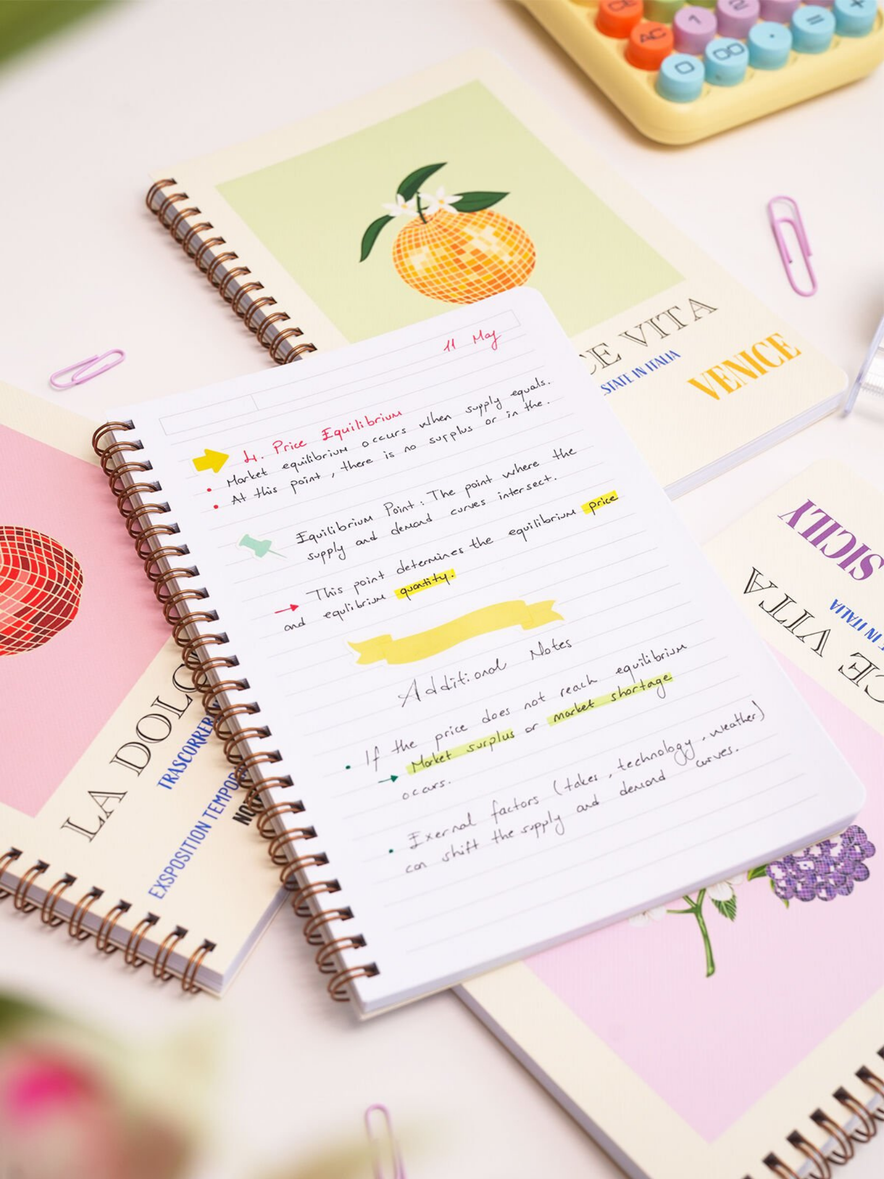 CE
AC
1
2
0
00
.
=
+
CE VITA
STATE IN ITALIA
VENICE
11 May
4. Price Equilibrium
Market equilibrium occurs when supply equals.
At this point, there is no surplus or in the.
Equilibrium Point: The point where the
supply and demand curves intersect.
This point determines the equilibrium price
and equlibrium quantity.
Additional Notes
If the price does not reach equilibrium
Market surplus or market shortage
occurs.
Exernal factors (takes, technology, weather)
can shift the supply and demand curves.
LA DOLC
TRASCORRER
EXSPOSITION TEMPOR
NO
SICILY
E IN ITALIA
CE VITA